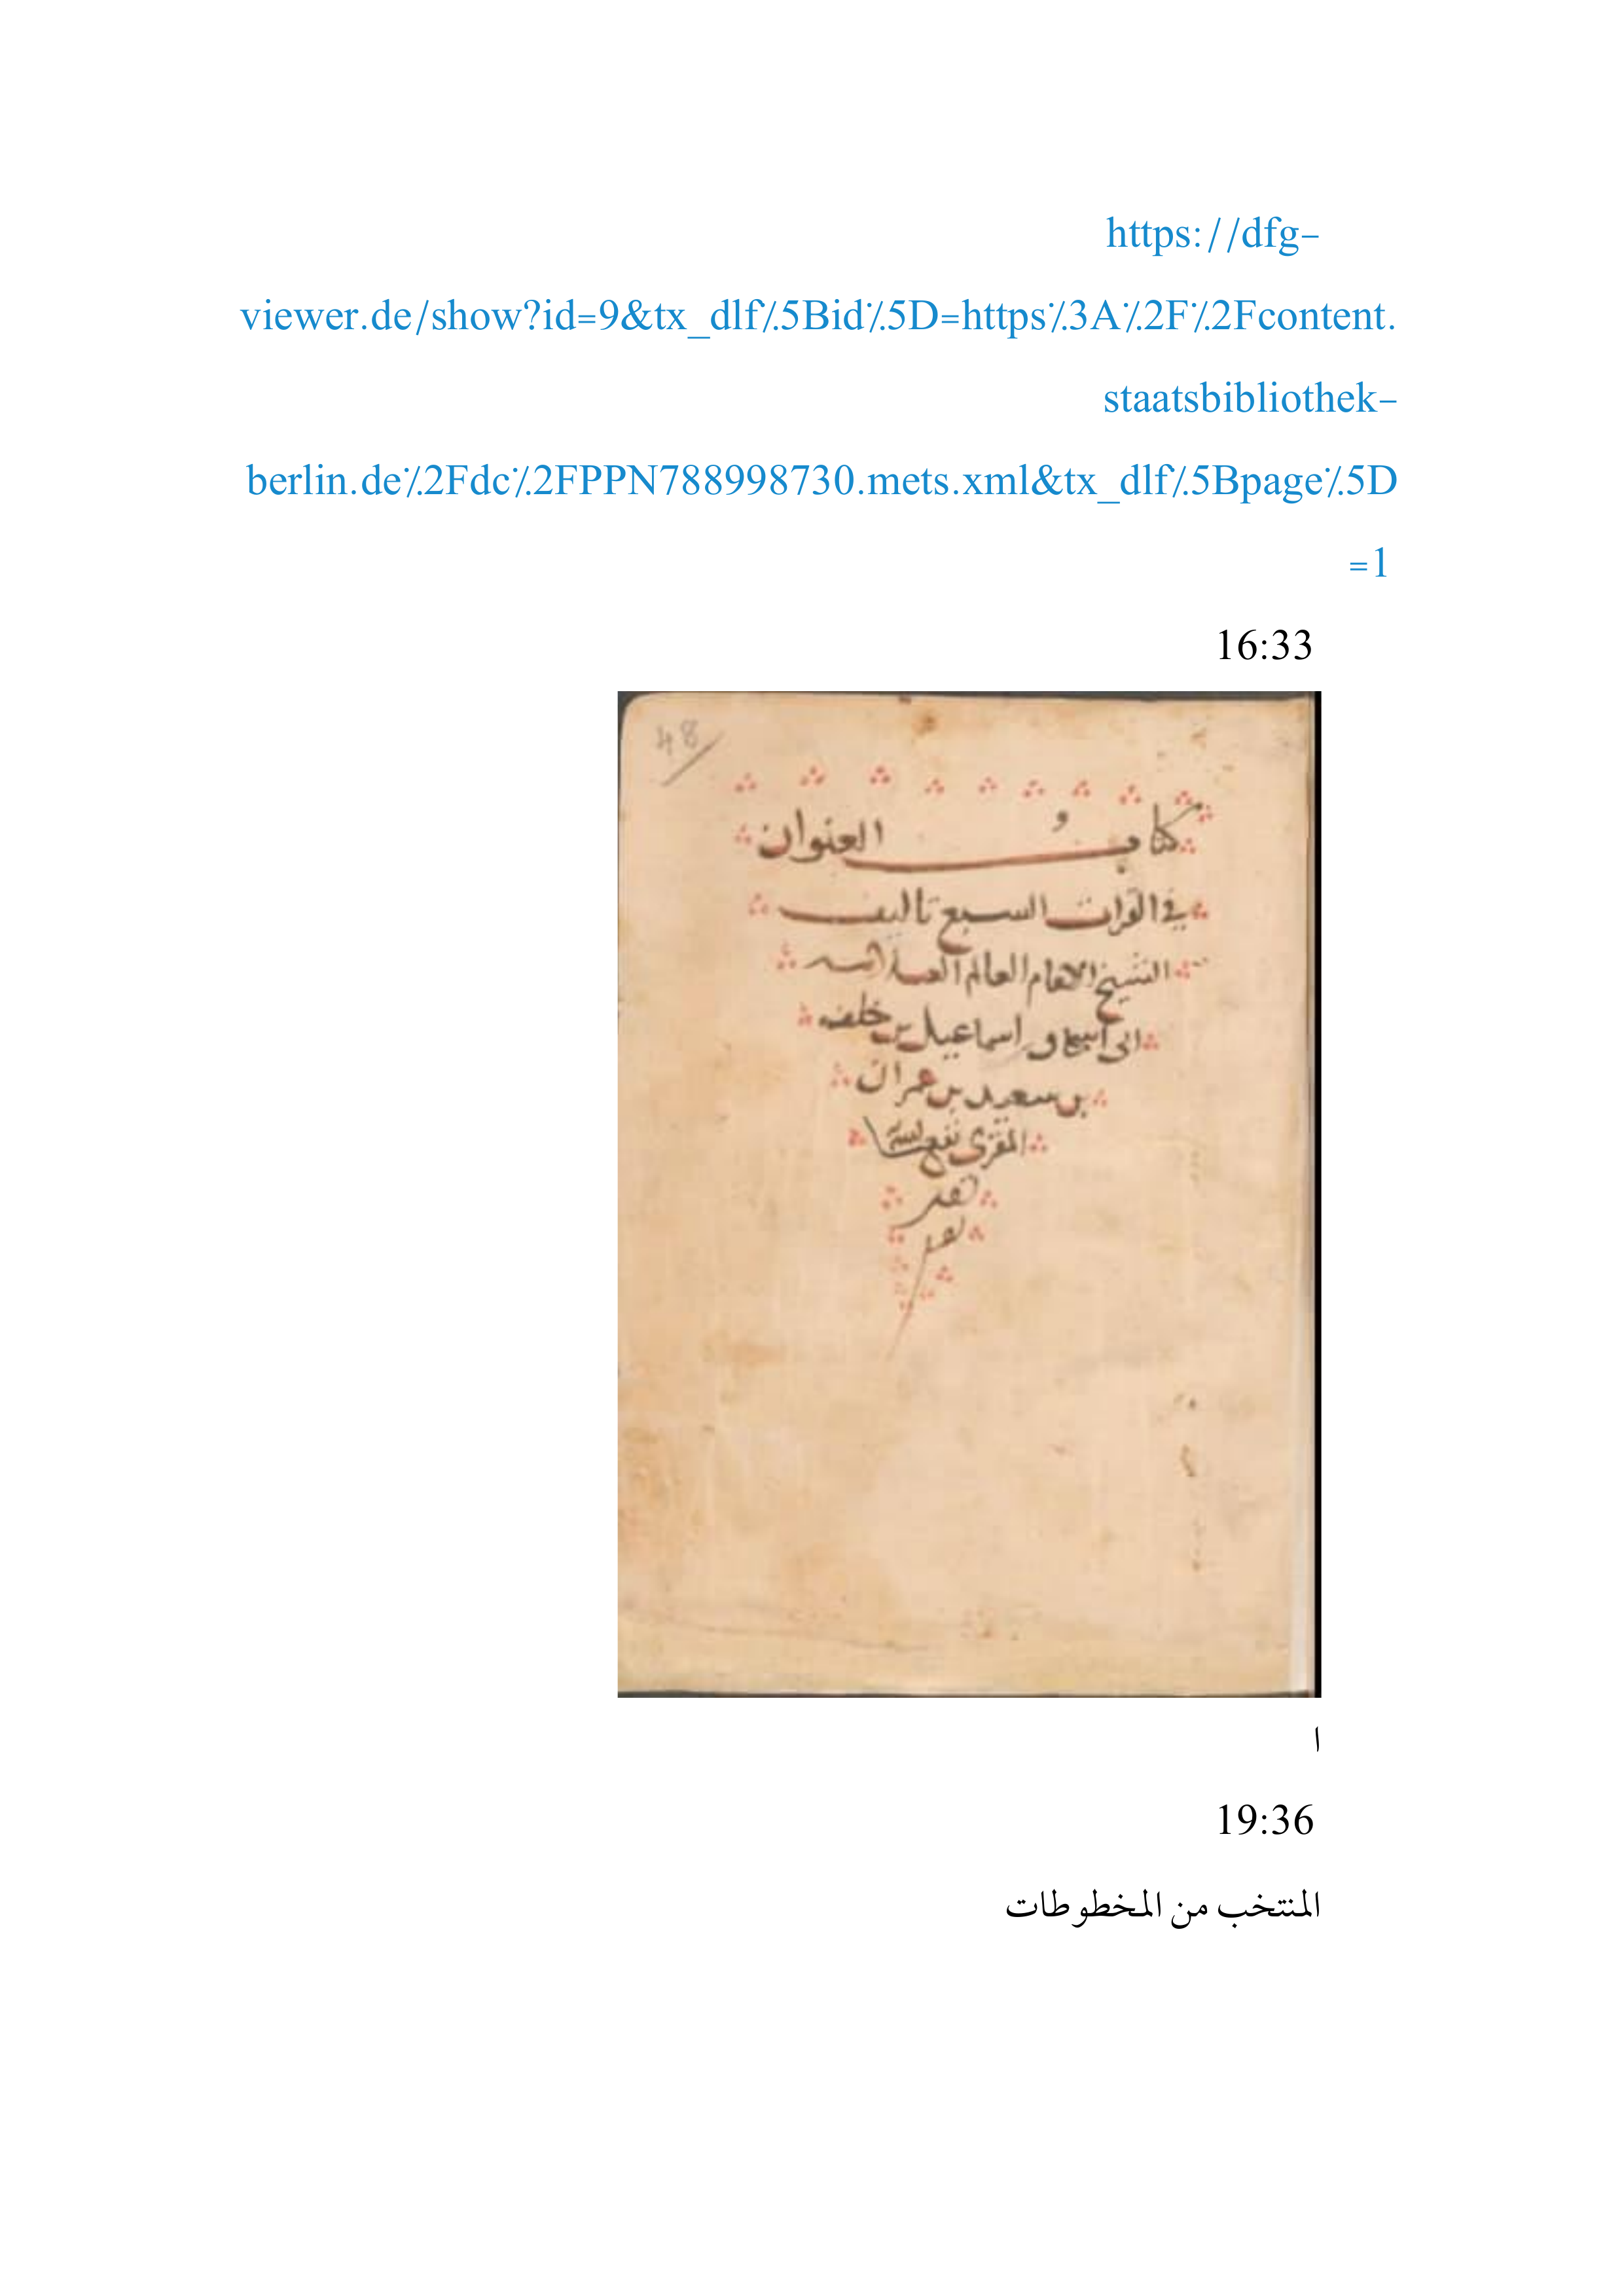 https://dfg-
viewer.de/show?id=9&tx_dlf%5Bid%5D=https%3A%2F%2Fcontent.
staatsbibliothek-
berlin.de%2Fdc%2FPPN788998730.mets.xml&tx_dlf%5Bpage%5D
=1
16:33
48
كتابُ العنوان
في القراات السبع تاليف
الشيخ الامام العالم العلامه
ابى اسحاق اسماعيل بن خلف
بن سعيد بن عمران
المقرى نفع الله
به
ا
19:36
المنتخب من المخطوطات